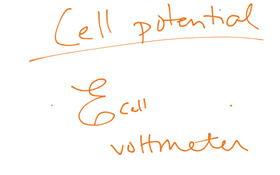 Cell potential
Ecell
voltmeter